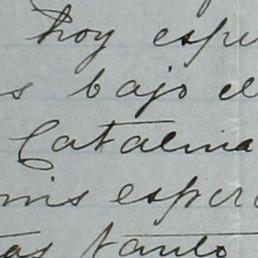 hoy espe
s bajo el
Catalina
mis espera
tas tanto